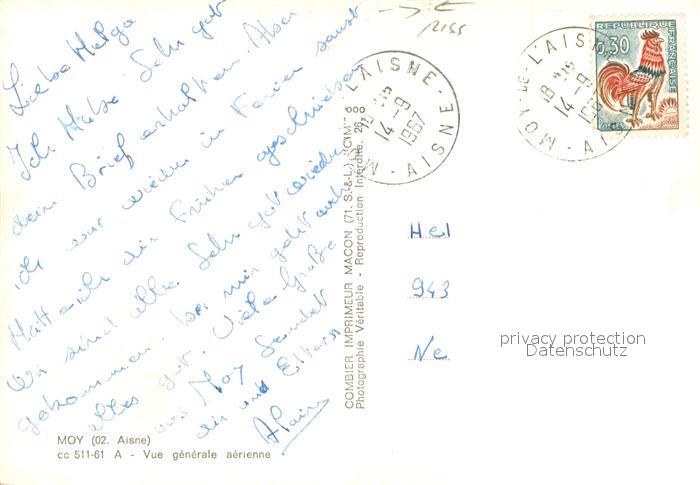 Liebe Helga
Ich Habe Sehr gut
dein Brief erhalten. Aber
ich war wieder in Ferien sonst
Hätt eich dir Früher geschrieben
Wir sind alle Sehr gut wieder
gekommen. bei mir geht auch
alles gut. Viele Grüße
aus Moy Sendet
dir und Eltern
Alain
MOY (02. Aisne)
cc 511-61 A - Vue générale aérienne
COMBIER IMPRIMEUR MACON (71. S.-&-L.)
Photographie Véritable - Reproduction Interdite.
L'AISNE
18 H
14 -9
1967
M - AISNE
MOY-DE-L'AISNE
18 H
14 -9
REPUBLIQUE FRANÇAISE
0,30
Hel
943
Ne
privacy protection
Datenschutz